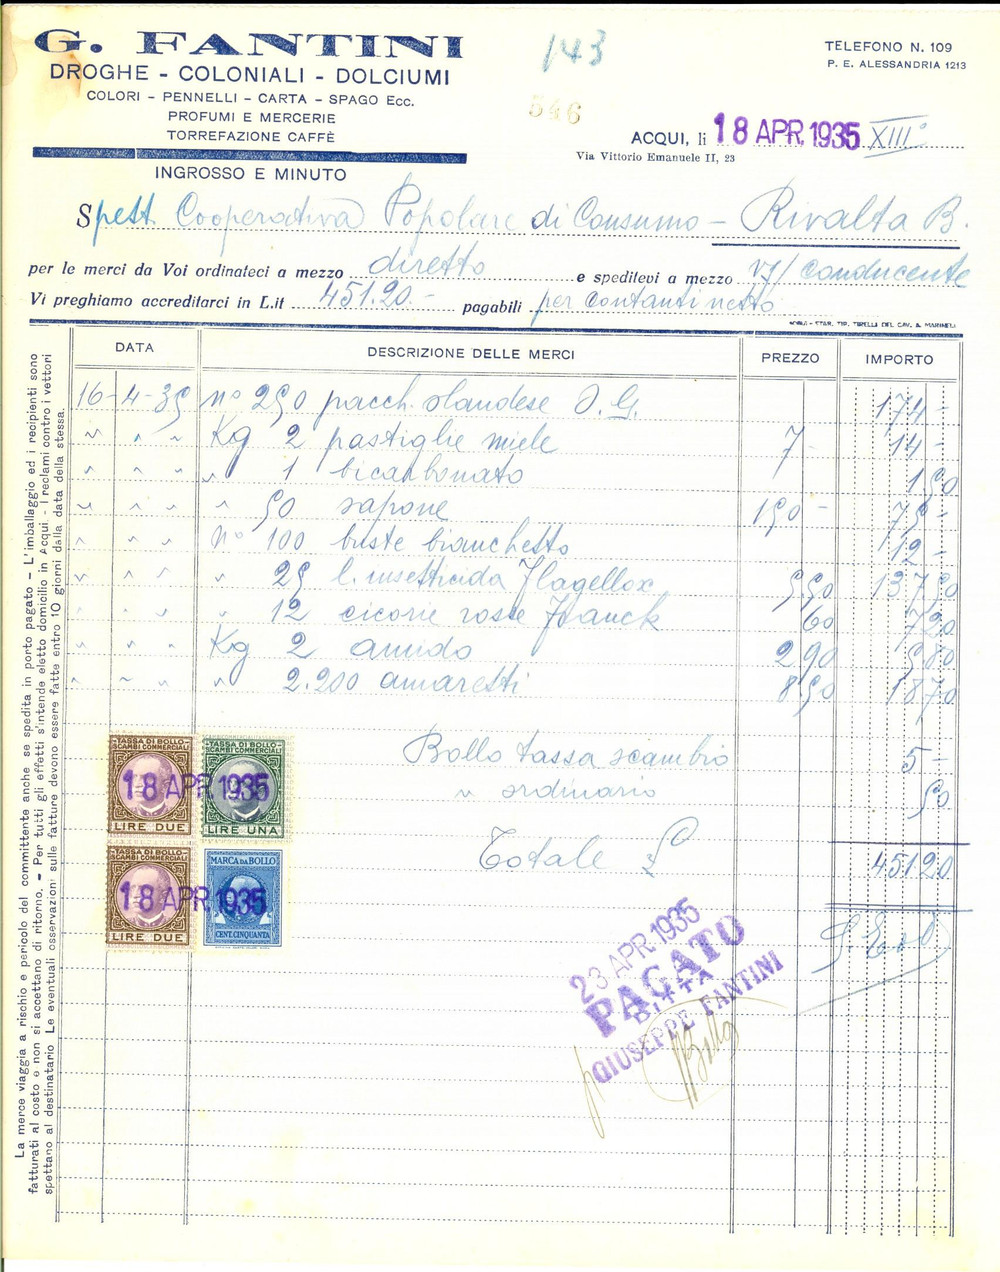 G. FANTINI
DROGHE - COLONIALI - DOLCIUMI
COLORI - PENNELLI - CARTA - SPAGO Ecc.
PROFUMI E MERCERIE
TORREFAZIONE CAFFÈ
INGROSSO E MINUTO
143
546
TELEFONO N. 109
P. E. ALESSANDRIA 1213
ACQUI, li 18 APR. 1935 XIII°
Via Vittorio Emanuele II, 23
Spett. Cooperativa Popolare di Consumo - Rivalta B.
per le merci da Voi ordinateci a mezzo diretto e speditevi a mezzo Vs/ conducente
Vi preghiamo accreditarci in L.it 451.20.- pagabili per contanti netto
ACQUI - STAB. TIP. TIRELLI DEL CAV. B. MARINELI
DATA DESCRIZIONE DELLE MERCI PREZZO IMPORTO
16-4-35 n° 250 pacch. olandese 174-
" " " Kg 2 pastiglie miele 7- 14-
" " " " 1 bicarbonato 1 50
" " " " 50 sapone 1 50- 75-
" " " N° 100 buste bianchetto 12-
" " " " 25 l. insetticida Flagellox 5.50 137 50
" " " " 12 cicorie rosse Franck 60 7 20
" " " Kg 2 amido 2 90 5 80
" " " " 2.200 amaretti 8 50 18 70
Bollo tassa scambio 5-
" ordinario 50
Totale £ 451 20
TASSA DI BOLLO
SCAMBI COMMERCIALI
LIRE DUE
TASSA DI BOLLO
SCAMBI COMMERCIALI
LIRE UNA
18 APR. 1935
TASSA DI BOLLO
SCAMBI COMMERCIALI
LIRE DUE
MARCA DA BOLLO
CENT. CINQUANTA
18 APR. 1935
23 APR 1935
PAGATO
DITTA
GIUSEPPE FANTINI
La merce viaggia a rischio e pericolo del committente anche se spedita in porto pagato - L'imballaggio ed i recipienti sono
fatturati al costo e non si accettano di ritorno. - Per tutti gli effetti s'intende eletto domicilio in Acqui. - I reclami contro i vettori
spettano al destinatario Le eventuali osservazioni sulle fatture devono essere fatte entro 10 giorni dalla data della stessa.